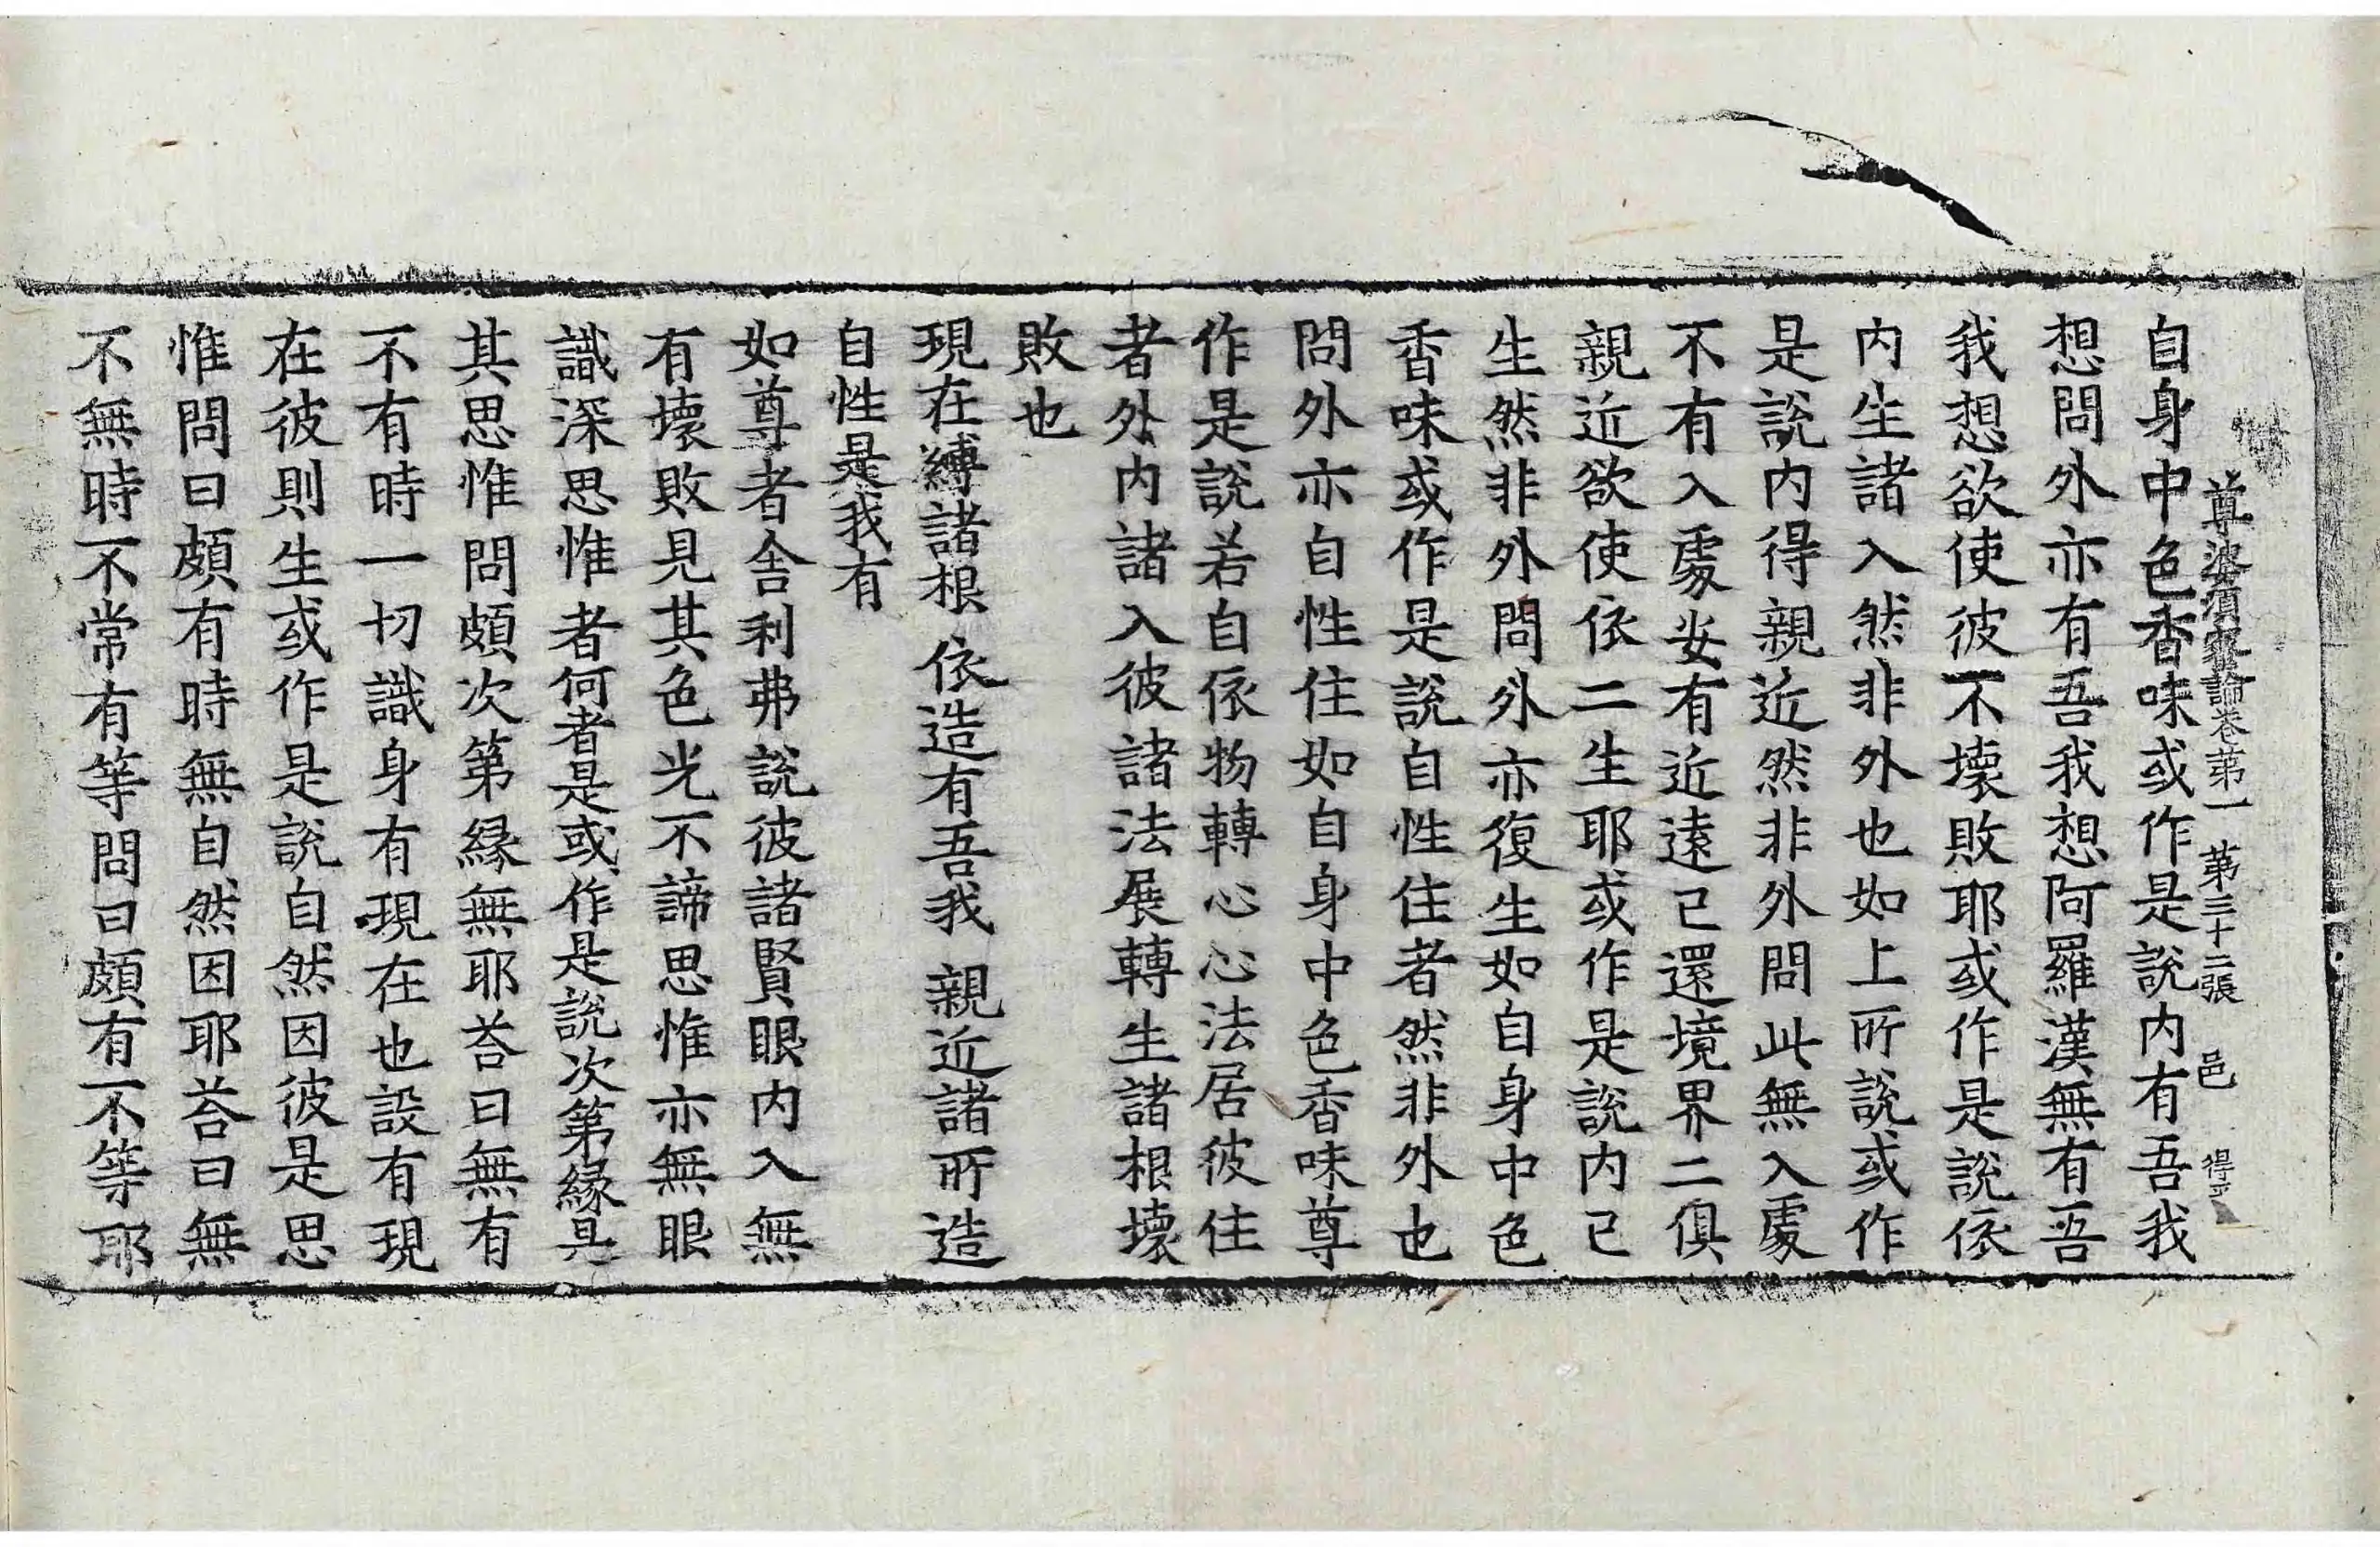 尊婆須蜜論卷第一 第三十二張 邑 得
自身中色香味或作是說内有吾我
想問外亦有吾我想阿羅漢無有吾
我想欲使彼不壞敗耶或作是說依
内生諸入然非外也如上所說或作
是說内得親近然非外問此無入處
不有入處妄有近遠已還境界二俱
親近欲使依二生耶或作是說内已
生然非外問外亦復生如自身中色
香味或作是說自性住者然非外也
問外亦自性住如自身中色香味尊
作是說若自依物轉心心法居彼住
者外内諸入彼諸法展轉生諸根壞
敗也
現在縛諸根 依造有吾我 親近諸所造
自性是我有
如尊者舍利弗說彼諸賢眼内入無
有壞敗見其色光不諦思惟亦無眼
識深思惟者何者是或作是說次第緣具
其思惟問頗次第緣無耶荅曰無有
不有時一切識身有現在也設有現
在彼則生或作是說自然因彼是思
惟問曰頗有時無自然因耶荅曰無
不無時不常有等問曰頗有不等耶